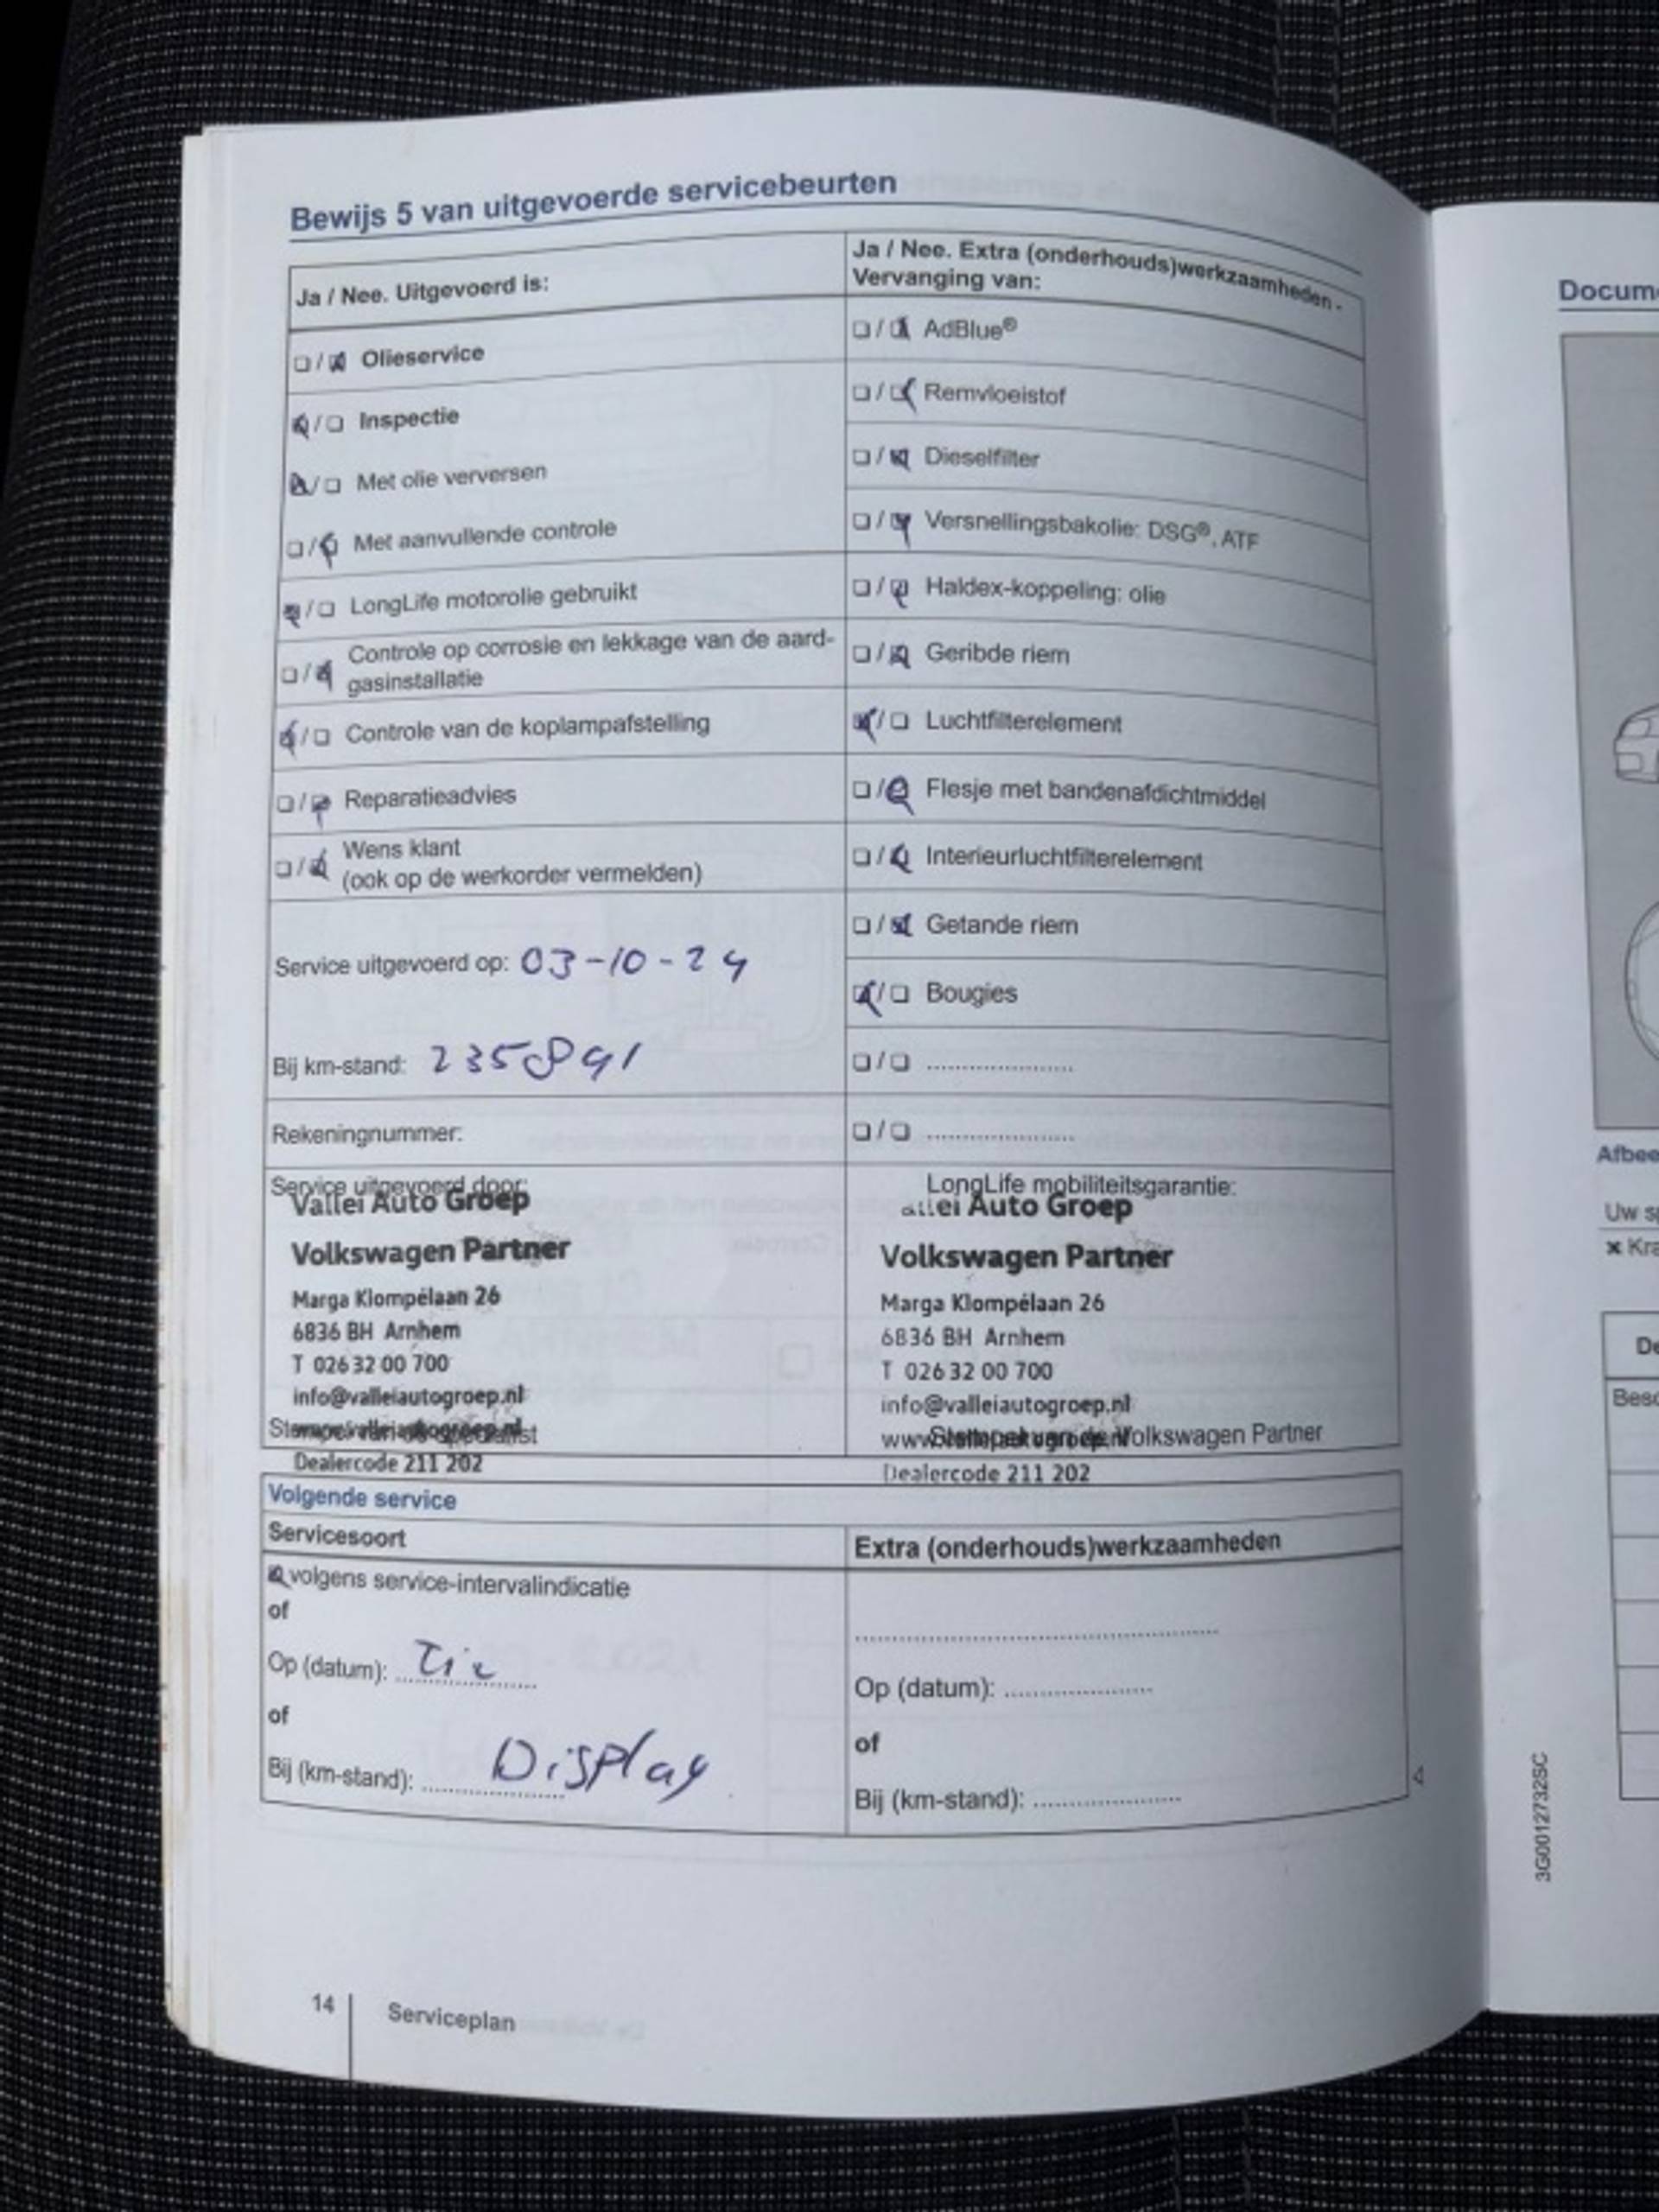 Bewijs 5 van uitgevoerde servicebeurten
Ja / Nee. Uitgevoerd is:
☐/☒ Olieservice
☒/☐ Inspectie
☒/☐ Met olie verversen
☐/☒ Met aanvullende controle
☒/☐ LongLife motorolie gebruikt
☐/☒ Controle op corrosie en lekkage van de aard-
gasinstallatie
☒/☐ Controle van de koplampafstelling
☐/☒ Reparatieadvies
☐/☒ Wens klant
(ook op de werkorder vermelden)
Service uitgevoerd op: 03-10-24
Bij km-stand: 235891
Rekeningnummer:
Ja / Nee. Extra (onderhouds)werkzaamheden -
Vervanging van:
☐/☒ AdBlue®
☐/☒ Remvloeistof
☐/☒ Dieselfilter
☐/☒ Versnellingsbakolie: DSG®, ATF
☐/☒ Haldex-koppeling: olie
☐/☒ Geribde riem
☒/☐ Luchtfilterelement
☐/☒ Flesje met bandenafdichtmiddel
☐/☒ Interieurluchtfilterelement
☐/☒ Getande riem
☒/☐ Bougies
☐/☐ ....................
☐/☐ ....................
Service uitgevoerd door:
Vallei Auto Groep
Volkswagen Partner
Marga Klompélaan 26
6836 BH Arnhem
T 026 32 00 700
info@valleiautogroep.nl
Dealercode 211 202
LongLife mobiliteitsgarantie:
Auto Groep
Volkswagen Partner
Marga Klompélaan 26
6836 BH Arnhem
T 026 32 00 700
info@valleiautogroep.nl
Stempel van de Volkswagen Partner
Dealercode 211 202
Volgende service
Servicesoort
☒ volgens service-intervalindicatie
of
Op (datum):
of
Bij (km-stand): Display
Extra (onderhouds)werkzaamheden
Op (datum): ....................
of
Bij (km-stand): ....................
14
Serviceplan
Docum
Afbee
Uw s
× Kra
De
Besc
3G0012732SC